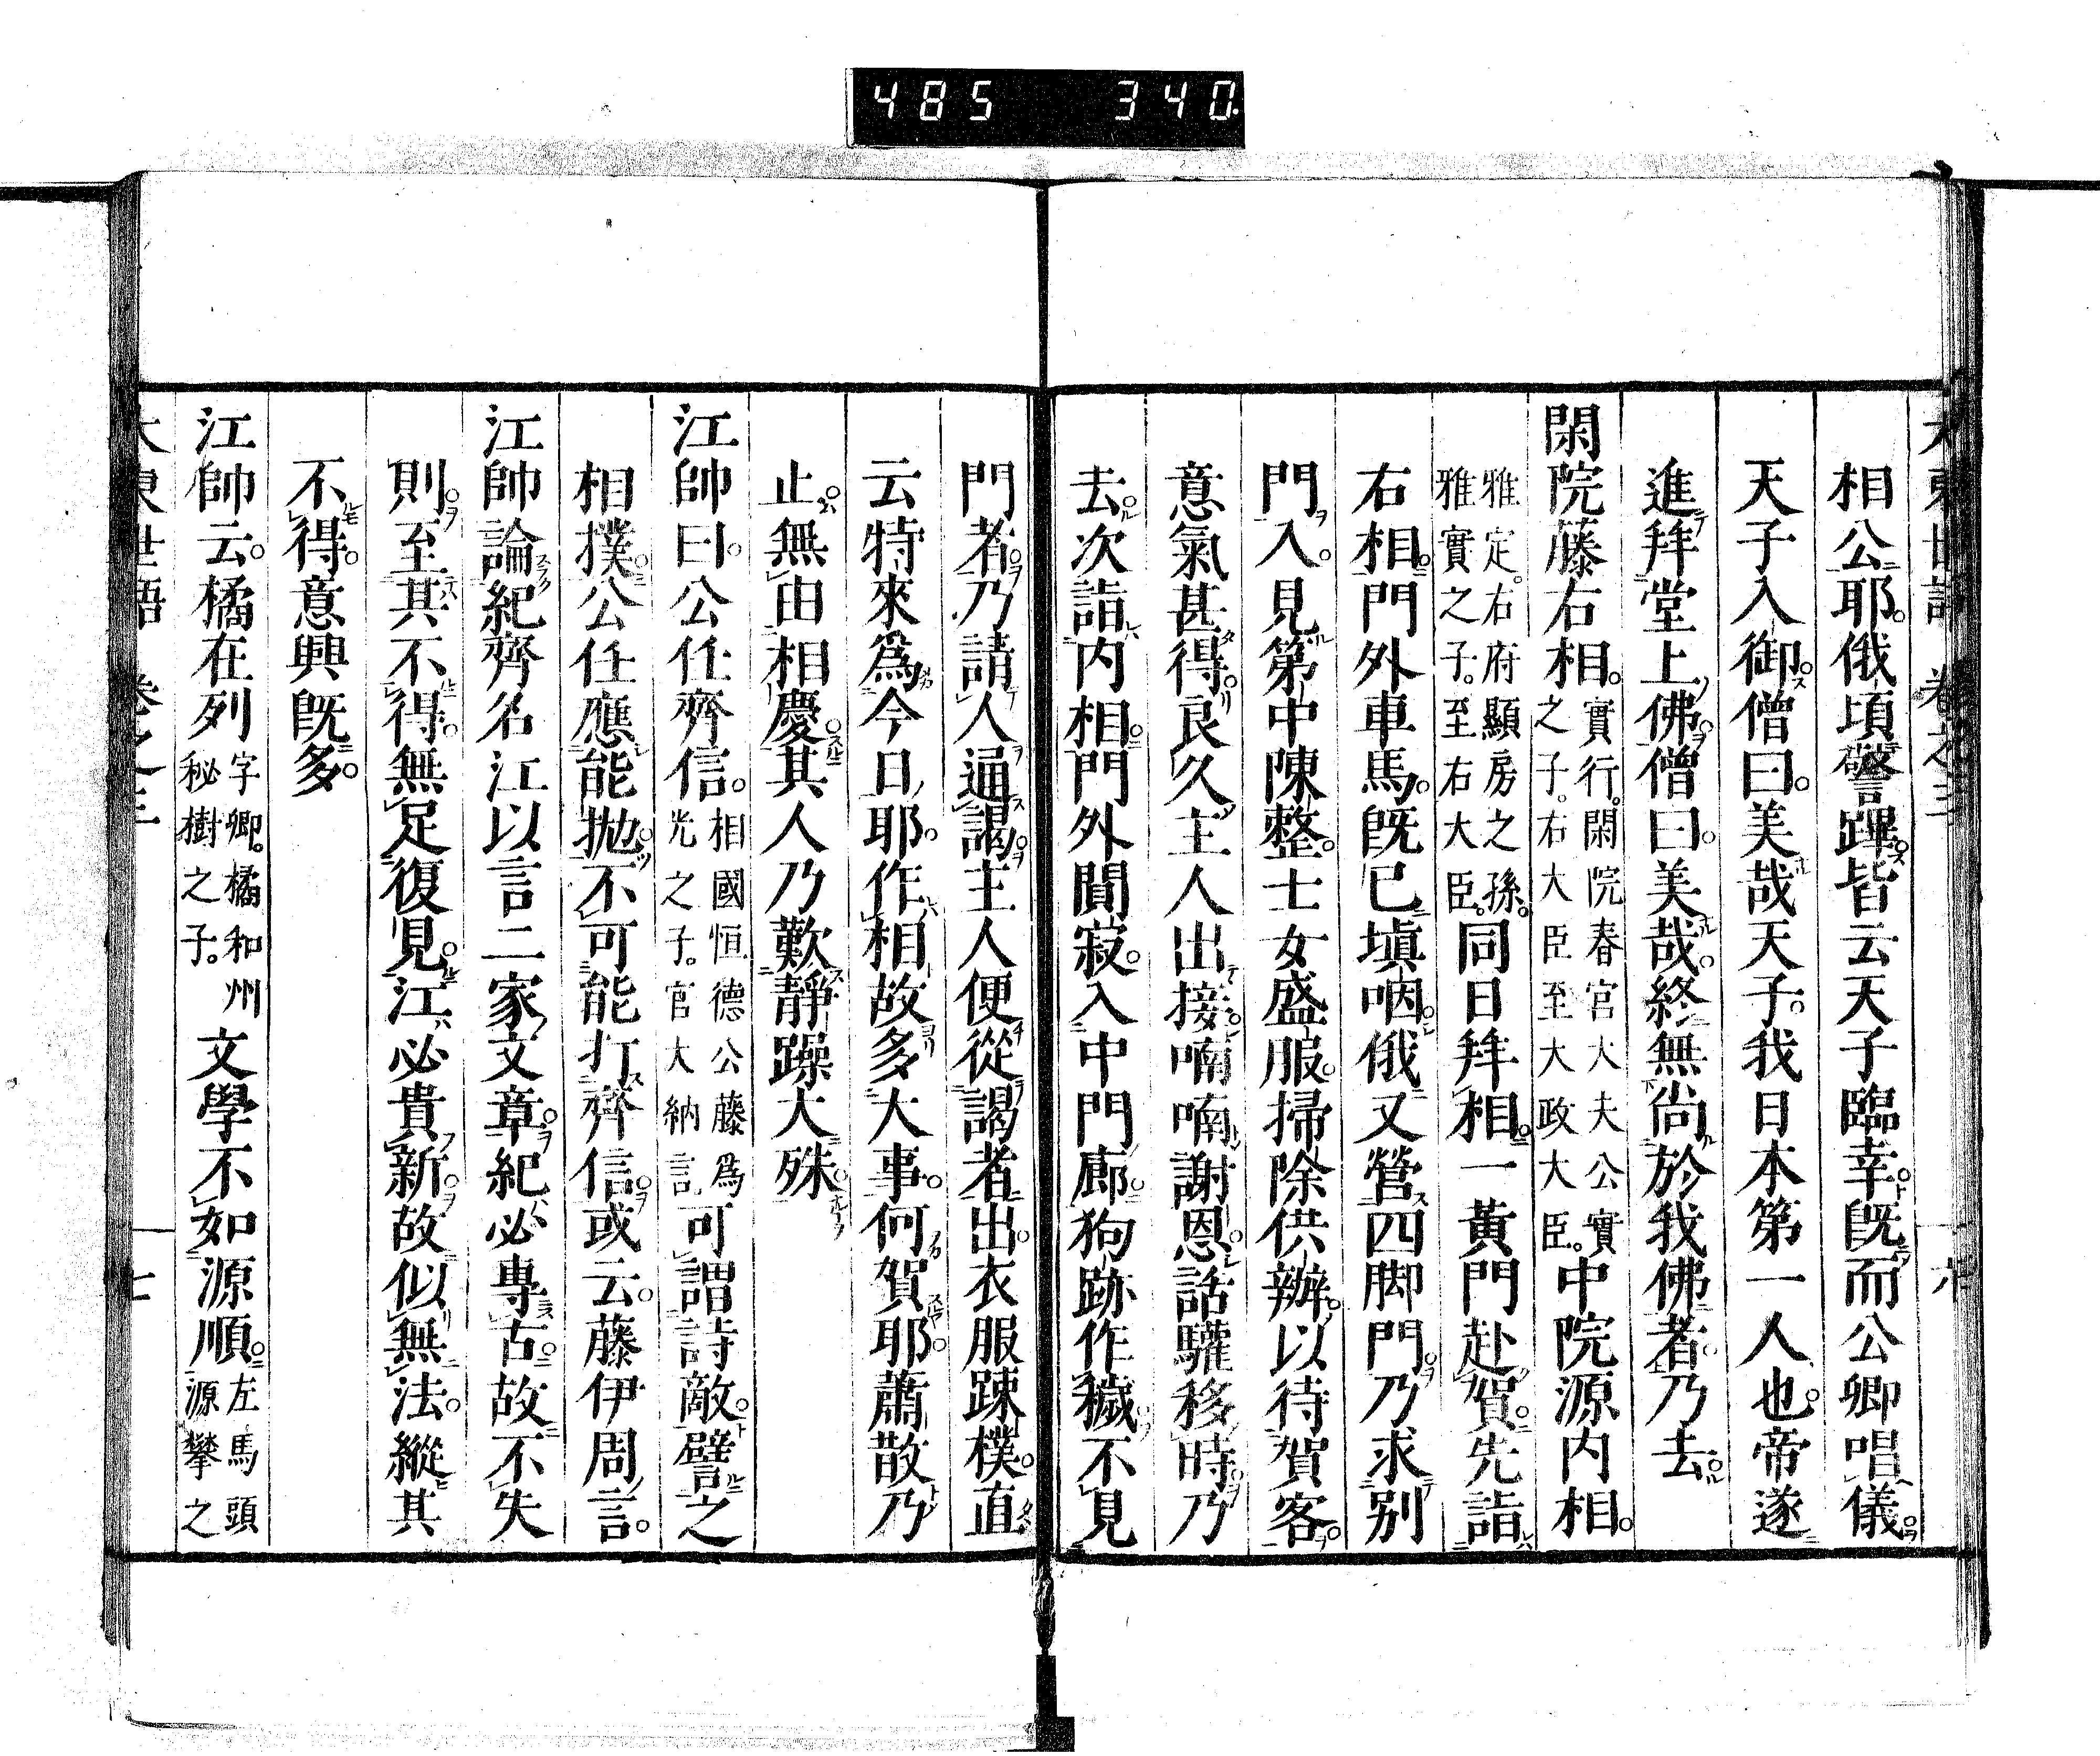 485 340
大東世語 卷之三 六
相公耶。俄頃警蹕皆云天子臨幸。既而公卿唱儀。
天子入御。僧曰。美哉天子。我日本第一人也。帝遂
進拜堂上佛。僧曰。美哉。終無尙於我佛者。乃去。
閑院藤右相。實行。閑院春宮大夫公實之子。右大臣至大政大臣。中院源内相。
雅定。右府顯房之孫。雅實之子。至右大臣。同日拜相。一黃門赴賀。先詣
右相。門外車馬。既已塡咽。俄又營四脚門。乃求別
門入。見第中陳整。士女盛服。掃除供辦。以待賀客。
意氣甚得。良久主人出接。喃喃謝恩。話驩移時。乃
去。次詣内相。門外閴寂。入中門廊。狗跡作穢。不見
門者。乃請人通謁。主人便從謁者出。衣服踈樸。直
云特來爲今日耶。作相故多大事。何賀耶。蕭散乃
止。無由相慶。其人乃歎靜躁大殊。
江帥曰。公任齊信。相國恒德公藤爲光之子。官大納言。可謂詩敵。譬之
相撲。公任應能拋。不可能打齊信。或云。藤伊周言。
江帥論紀齊名江以言二家文章。紀必專古。故不失
則。至其不得。無足復見。江必貴新。故似無法。縱其
不得。意興既多。
江帥云。橘在列字卿。橘和州秘樹之子。文學不如源順。左馬頭源攀之
大東世語 卷之三 七